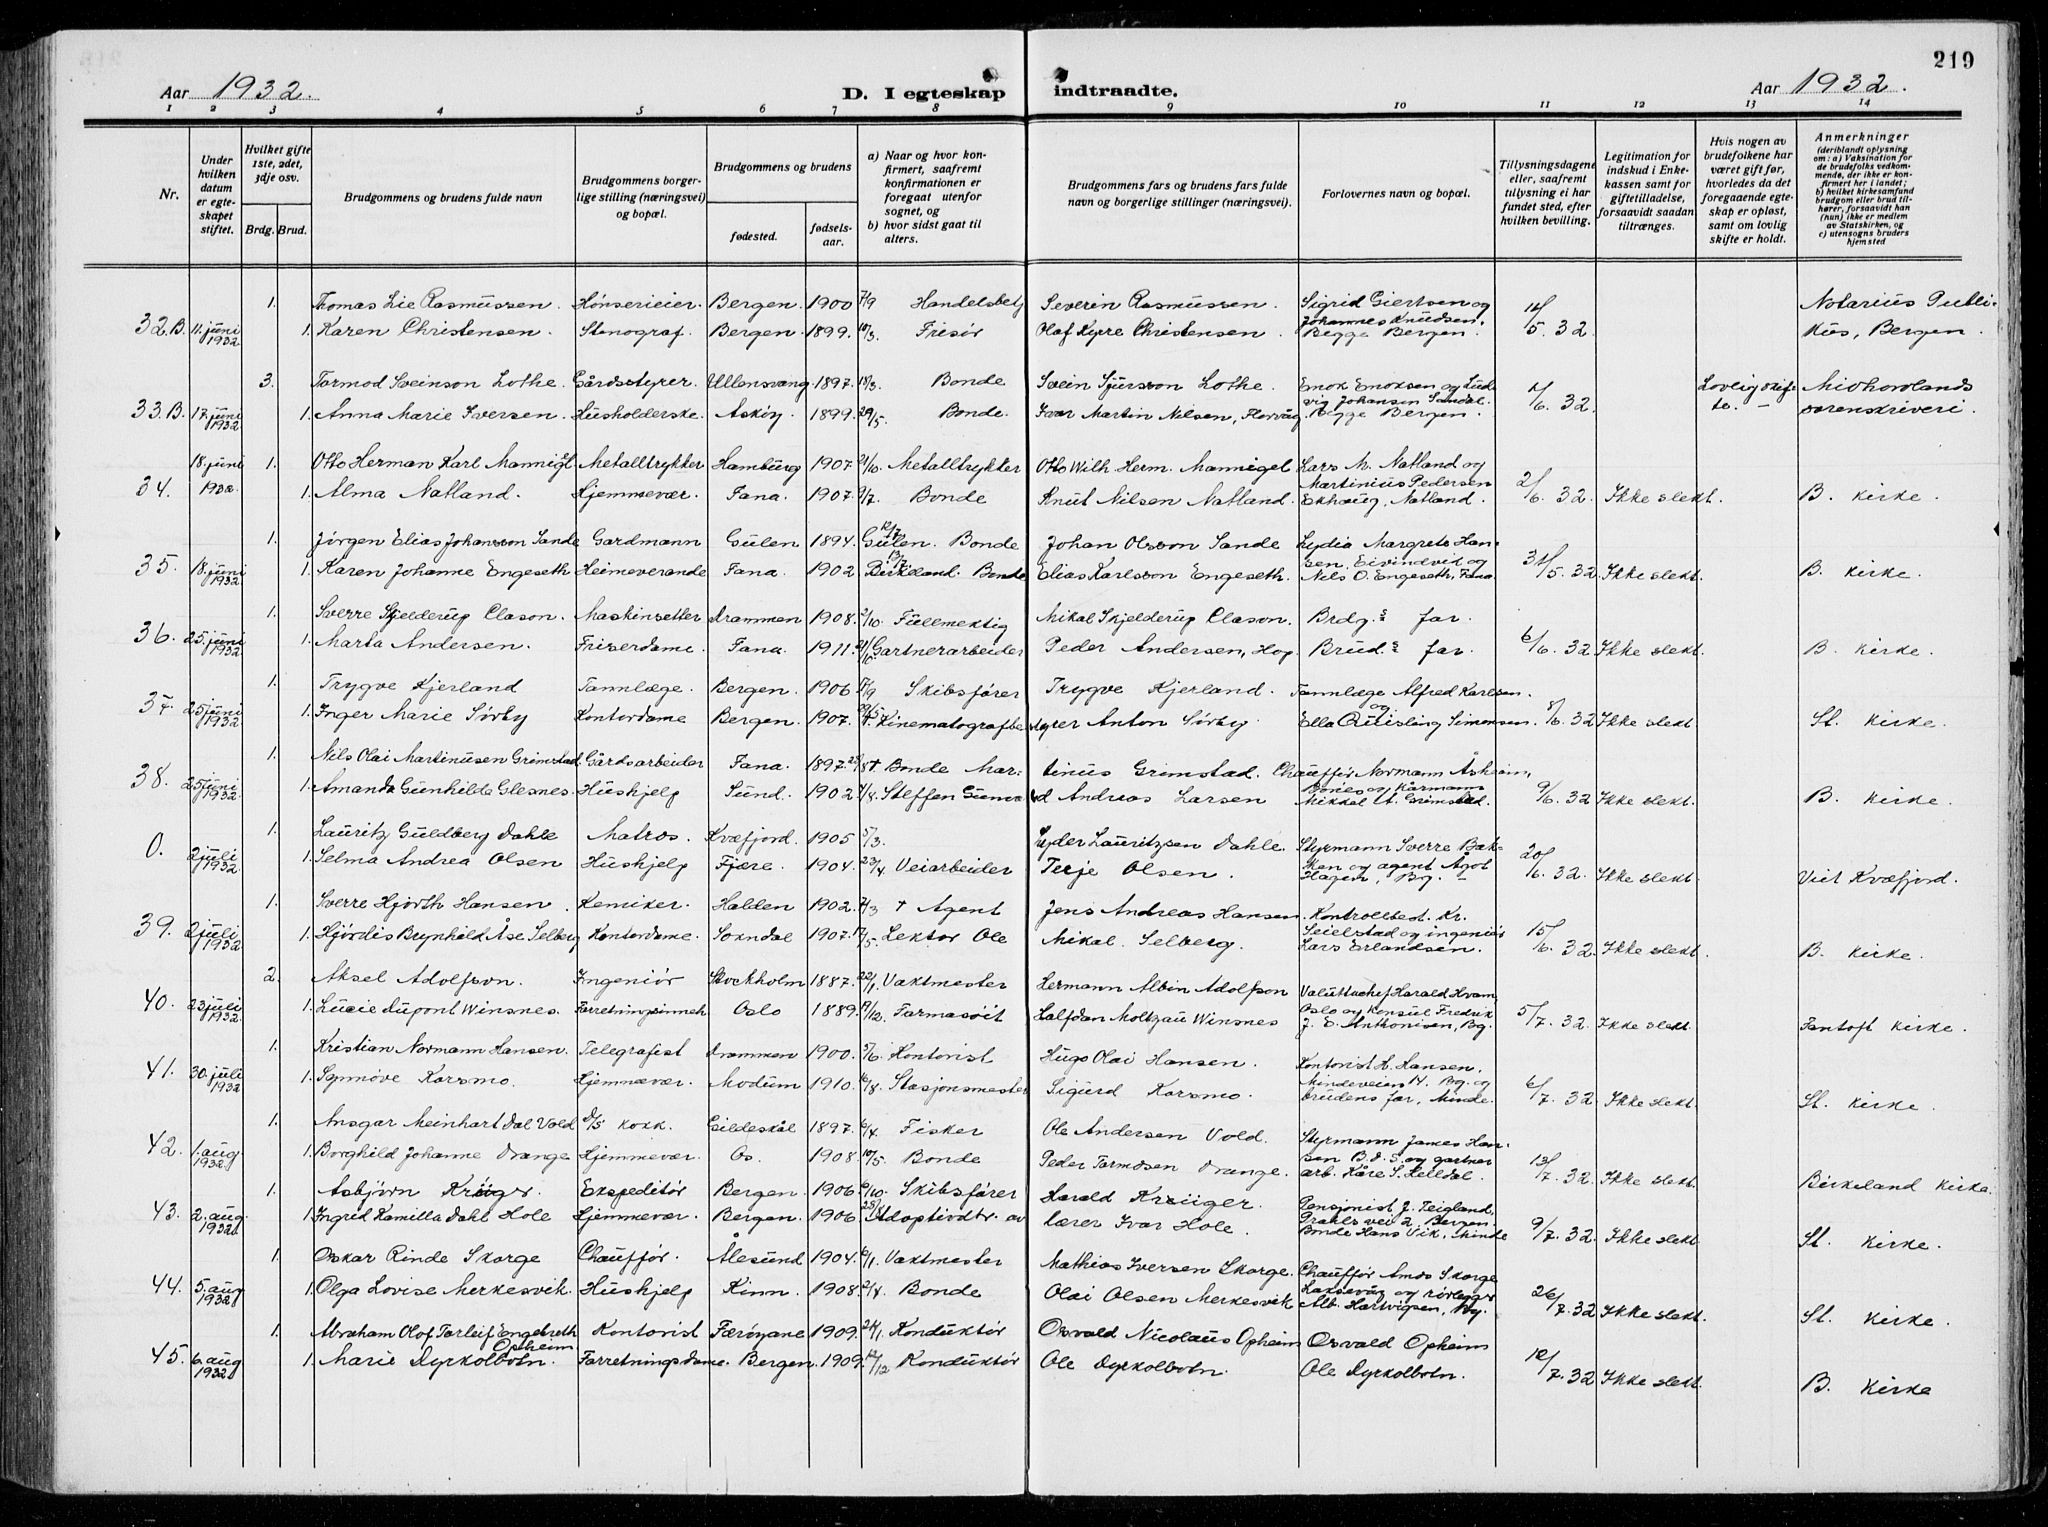 219
Aar 1932. D. I egteskap indtraadte. Aar 1932.
1 2 3 4 5 6 7 8 9 10 11 12 13 14
Nr.
Under hvilken datum er egteskapet stiftet.
Hvilket gifte 1ste, 2det, 3dje osv.
Brdg. Brud.
Brudgommens og brudens fulde navn
Brudgommens borgerlige stilling (næringsvei) og bopæl.
Brudgommens og brudens
fødested.
fødselsaar.
a) Naar og hvor konfirmert, saafremt konfirmationen er foregaat utenfor sognet, og
b) hvor sidst gaat til alters.
Brudgommens fars og brudens fars fulde navn og borgerlige stillinger (næringsvei).
Forlovernes navn og bopæl.
Tillysningsdagene eller, saafremt tillysning ei har fundet sted, efter hvilken bevilling.
Legitimation for indskud i Enkekassen samt for giftetilladelse, forsaavidt saadan tiltrænges.
Hvis nogen av brudefolkene har været gift før, hvorledes da det foregaaende egteskap er opløst, samt om lovlig skifte er holdt.
Anmerkninger (deriblandt oplysning om: a) Vaksination for de brudefolks vedkommende, der ikke er konfirmert her i landet; b) hvilket kirkesamfund brudgom eller brud tilhører, forsaavidt han (hun) ikke er medlem av Statskirken, og c) utensogns bruders hjemsted
1. Thomas Lie Rasmussen. Hønserieier. Bergen. 1900 7/9 Handelsbetj Severin Rasmussen. Sigrid Giertsen og Notarius Publi-
32.B. 11. juni 1932 1. Karen Christensen. Stenograf. Bergen. 1899. 10/3. Frisør Olaf Kyre Christensen. Johannes Knudsen. Begge Bergen. 14/5. 32. kus, Bergen.
3. Tormod Sveinson Lothe. Gårdsstyrer. Ullensvang. 1897. 18/3. Bonde Svein Sjursson Lothe. Enok Enoksen og Lud- Lovlig skif- Midhordlands
33.B. 17. juni 1932 1. Anna Marie Iversen. Husholderske. Askøy. 1899. 29/5. Bonde. Ivar Martin Nilsen, Florvåg. vig Johansen Sandal. Begge Bergen. 1/6. 32. te. - sorenskriveri.
18. juni 1932. 1. Otto Herman Karl Mannigel. Metalltrykker Hamburg 1907. 21/10. Metalltrykker Otto Wilh Herm. Mannigel Lars M. Natland og
34. 1. Alma Natland. Hjemmevær. Fana. 1907. 9/7. Bonde Knut Nilsen Natland. Martinius Pedersen Ekhaug, Natland. 2/6. 32. Ikke slekt. B. kirke.
1. Jørgen Elias Johansson Sande Gardmann Gulen 1894. 12/7 Gulen. Bonde Johan Olsson Sande Lydia Margrete Han-
35. 18. juni 1932 1. Karen Johanne Engeseth. Heimeverande Fana. 1902 13/7 Birkeland. Bonde Elias Karlsson Engeseth. sen, Eivindvid og Nils O. Engeseth, Fana. 31/5. 32 Ikke slekt. B. kirke.
1. Sverre Skjelderup Clason. Maskinsetter Drammen 1908. 2/10. Fullmektig Mikal Skjelderup Clason. Brdg.s far.
36. 25. juni 1932 1. Marta Andersen. Friserdame. Fana. 1911. Gartnerarbeider Peder Andersen, Hop. Brud.s far. 6/6. 32 Ikke slekt. B. kirke.
1. Trygve Kjerland Tannlæge. Bergen. 1906 17/9 Skibsfører Trygve Kjerland. Tannlæge Alfred Karlsen. og
37. 25 juni 1932. 1. Inger Marie Sørby Kontordame Bergen. 1907. 29/5 † Kinematografbestyrer Anton Sørby Ella Quisling Simonsen. 8/6. 32 Ikke slekt. St. kirke.
1. Nils Olai Martinusen Grimstad Gårdsarbeider Fana. 1897. † Bonde Martinus Grimstad. Chauffør Normann Åsheim,
38. 25 juni 1932. 1. Amanda Gunhilda Glesnes. Hushjelp Sund. 1902. Steffen Andreas Larsen Mikkal A. Grimstad. 9/6. 32 Ikke slekt. B. kirke.
1. Lauritz Guldberg Dahle Matros. Kvæfjord. 1905 5/3. Peder Lauritzsen Dahle. Styrmann Sverre Bak-
0. 2 juli 1932 1. Selma Andrea Olsen Hushjelp Fjære. 1904. 23/4 Veiarbeider Terje Olsen. ken og agent Ågot Hagen, Bg. - 20/6. 32. Ikke slekt. Viet Kvæfjord.
1. Sverre Hjorth Hansen. Kemiker. Halden 1902. † Agent Jens Andreas Hansen. Kontrollbest. Kr.
39. 2 juli 1932 1. Hjørdis Brynhild Åse Selberg Kontordame. Sokndal 1907. Lektor Ole Mikal. Selberg. Seielstad og ingeniør Lars Erlandsen. 15/6. 32 Ikke slekt. B. kirke.
2. Aksel Adolfson. Ingeniør Stockholm 1887. 22/1. Vaktmester Hermann Albin Adolfson Valuttachef Harald Hvam,
40. 23 juli 1932. 1. Lucie Dupont Winsnes. Forretningsinneh Oslo 1889. 17/12. Farmasøit Halfdan Moltzau Winsnes Oslo og konsul Fredrik J. E. Anthonisen, Bg. 5/7. 32. Ikke slekt Fantoft kirke.
1. Kristian Normann Hansen. Telegrafist Drammen 1900. 5/6. Kontorist Hugo Olai Hansen. Kontorist H. Hansen.
41. 30. juli 1932 1. Synnøve Korsmo. Hjemmevær. Modum 1910. Stasjonsmester Sigurd Korsmo. Mindeveien 14. Bg. og brudens far, Minde. 6/7. 32. Ikke slekt. St. kirke.
1. Ansgar Meinhart Dal Vold D/S kokk. Gildeskål 1897. 6/4. Fisker Ole Andersen Vold. Styrmann James Han-
42. 1. aug 1932. 1. Borghild Johanne Drange Hjemmevær. Os. 1908. 10/5. Bonde Peder Tormodsen Drange. sen B. d. S. og gartner arb. Kåre S. Helldal. 13/7. 32 Ikke slekt Birkeland kirke.
1. Asbjørn Krüger. Ekspeditør Bergen. 1906. 6/10. Skibsfører Harald Krüger. Pensjonist J. Teigland,
43. 2. aug 1932. 1. Ingrid Kamilla Dahl Hole Hjemmevær. Bergen. 1906 Adoptivdtr. av lærer Ivar Hole. Krahls vei 2, Bergen. Bonde Hans Vik, Minde 9/7. 32. Ikke slekt St. kirke.
1. Oskar Rinde Skorge Chauffør. Ålesund 1904. 6/1. Vaktmester Mathias Iversen Skorge. Chauffør Amos Skorge
44. 5. aug 1932. 1. Olga Lovise Merkesvik. Hushjelp Kinn. 1908. 2/4. Bonde Olai Olsen Merkesvik Laksevåg og rørlegger Alb. Hartvigsen, Bg. 26/7. 32 Ikke slekt. St. kirke.
1. Abraham Olof Torleif Engebreth Opheim Kontorist Færøyane 1909. 24/1. Konduktør Osvald Nicolaus Opheim Osvald Opheim
45. 6. aug 1932. 1. Marie Dyrkolbotn. Forretningsdame. Bergen. 1909. 12/12 Konduktør Ole Dyrkolbotn. Ole Dyrkolbotn. 12/7. 32 Ikke slekt. B. kirke